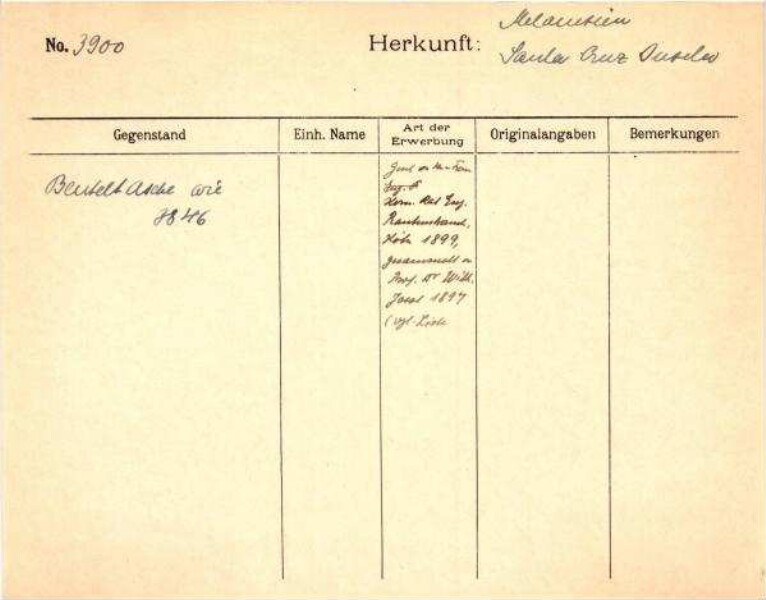 No. 3900
Herkunft: Melanesien
Santa Cruz Inseln
Gegenstand
Einh. Name
Art der
Erwerbung
Originalangaben
Bemerkungen
Beuteltasche wie
3846
Eug.
Kom. Rat Eug.
Rautenstrauch,
Köln 1899,
gesammelt v.
Prof. Dr Wilh.
Joest 1897
(vgl. Liste